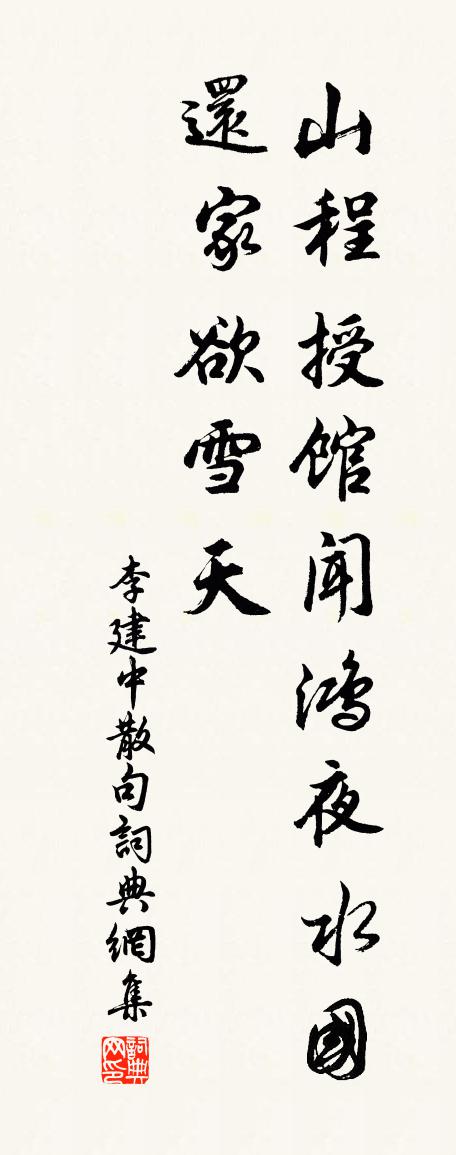 山程授館聞鴻夜水國
還家欲雪天
李建中散句詞典網集
詞典网印